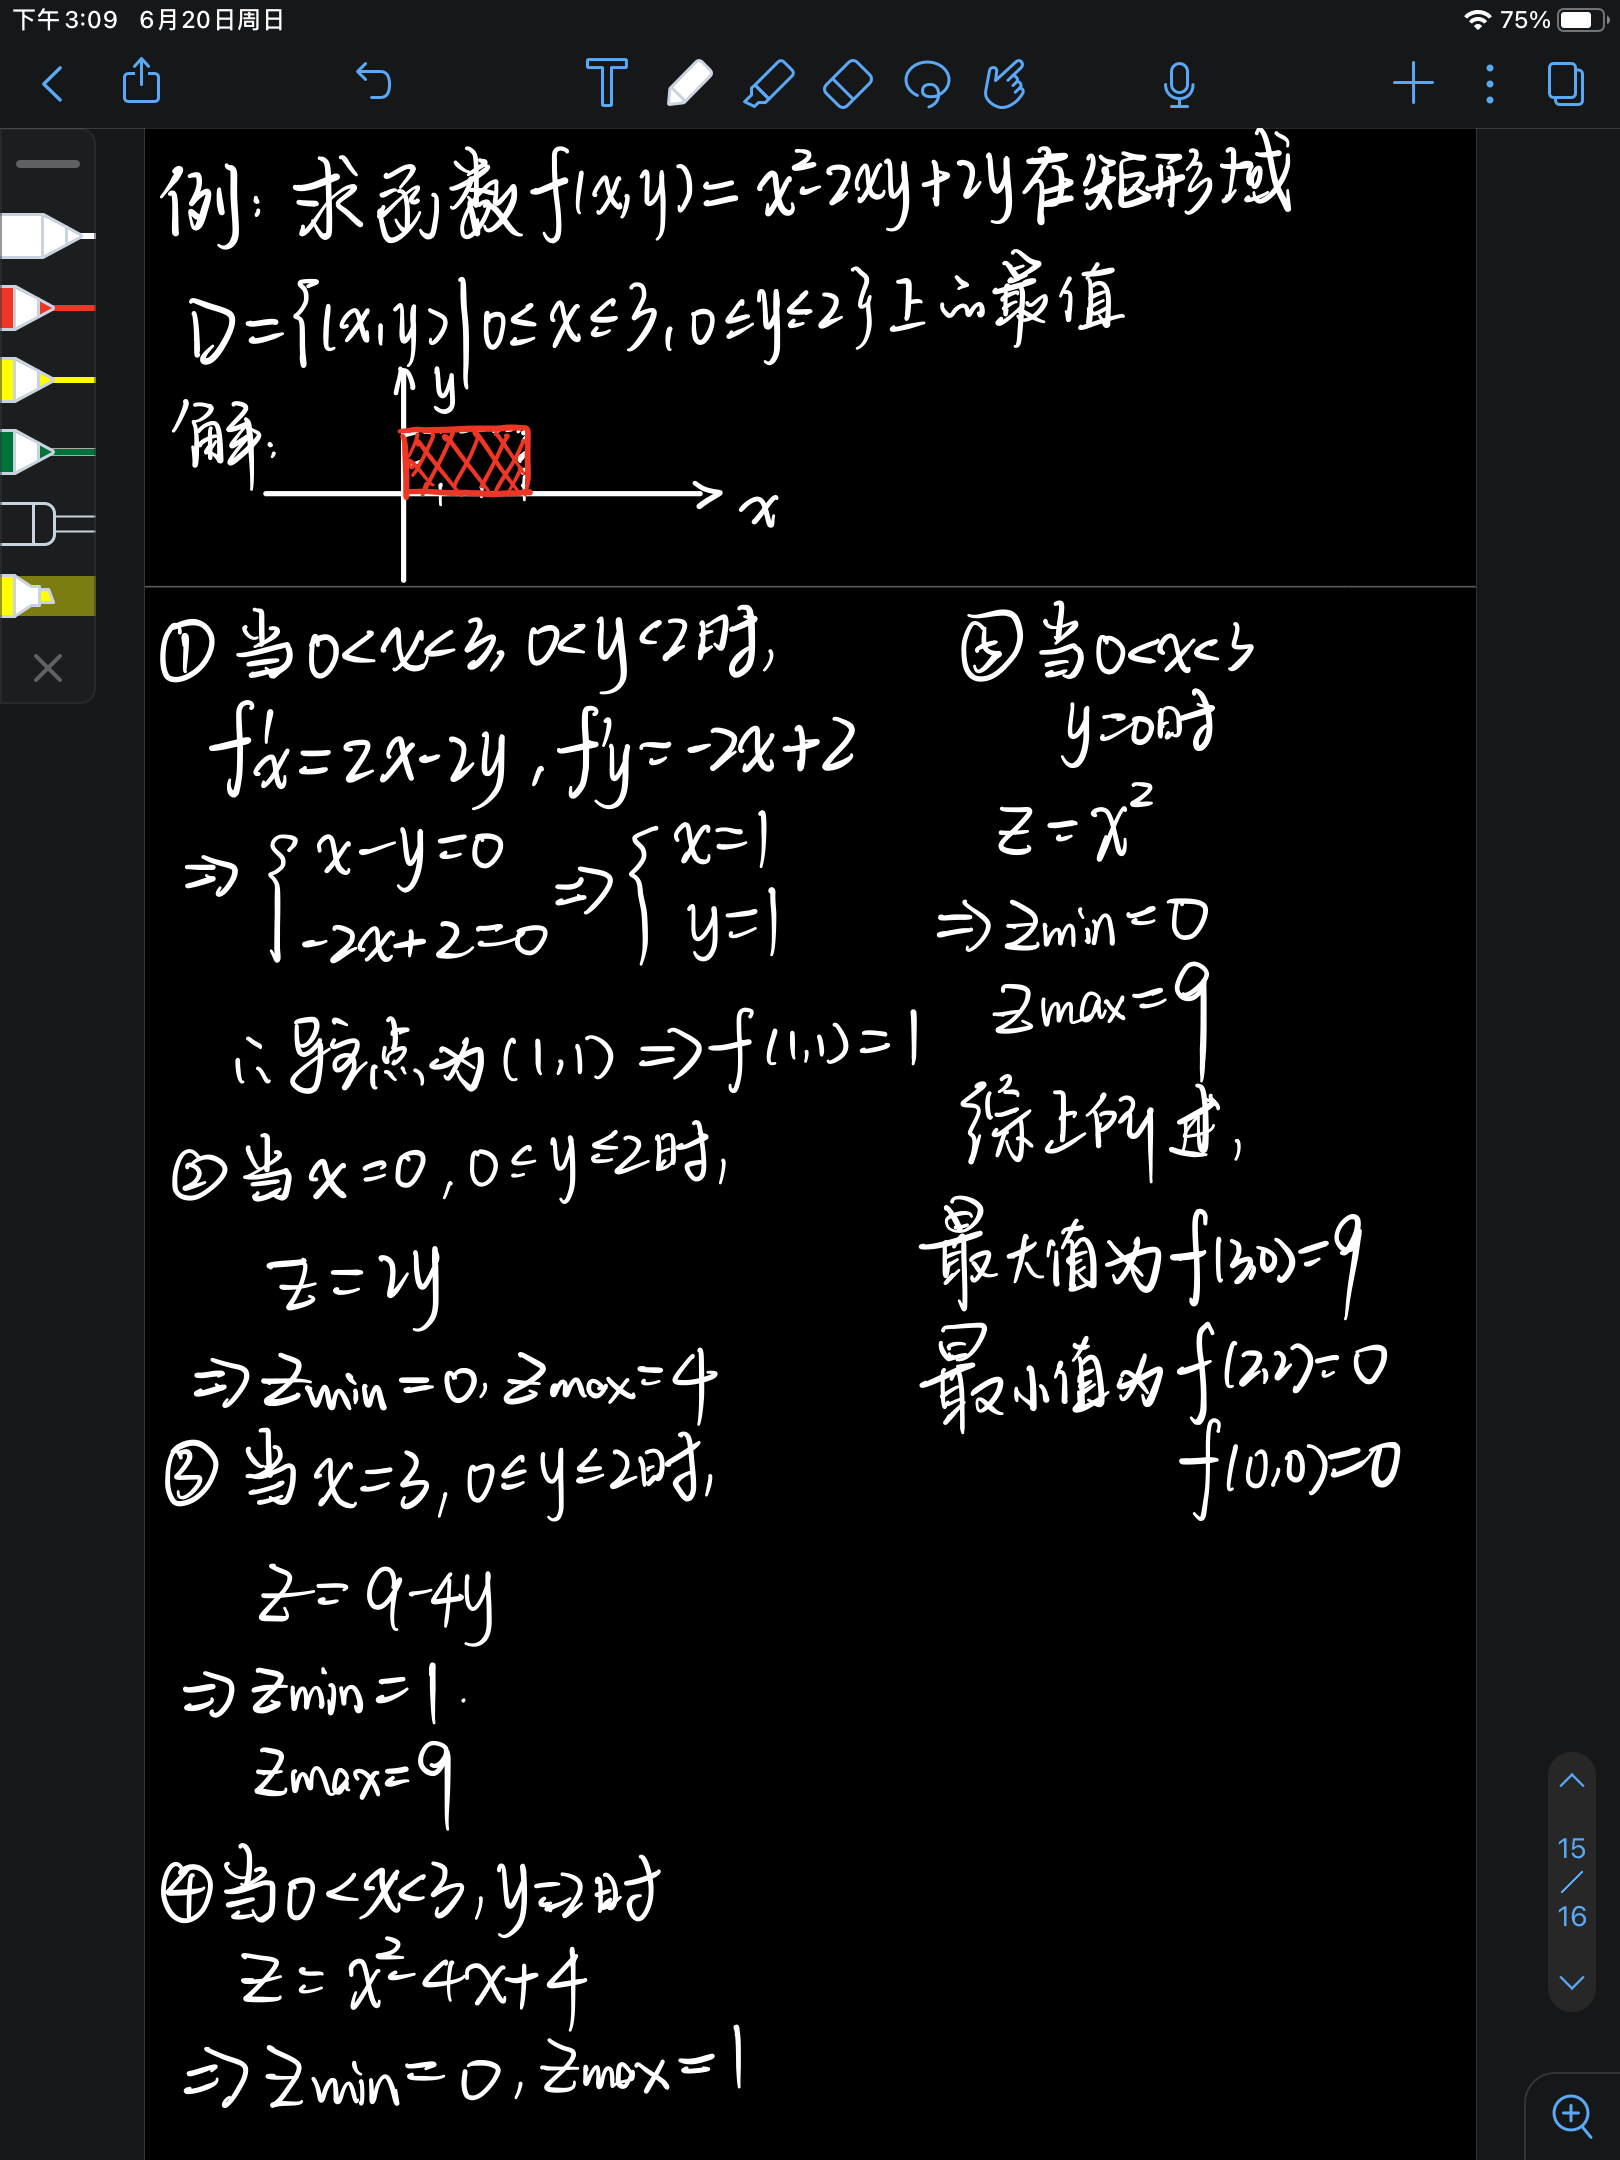 下午3:09 6月20日周日
75%
例：求函数f(x,y)=x²-2xy+2y在矩形域
D={(x,y)|0≤x≤3,0≤y≤2}上的最值
解：
y
x
①当0<x<3,0<y<2时,
f'x=2x-2y,f'y=-2x+2
⇒{x-y=0 ⇒{x=1
-2x+2=0 y=1
∴驻点为(1,1)⇒f(1,1)=1
②当x=0,0≤y≤2时,
z=2y
⇒zmin=0,zmax=4
③当x=3,0≤y≤2时,
z=9-4y
⇒zmin=1.
zmax=9
④当0<x<3,y=2时
z=x²-4x+4
⇒zmin=0,zmax=1
⑤当0<x<3
y=0时
z=x²
⇒zmin=0
zmax=9
综上所述,
最大值为f(3,0)=9
最小值为f(2,2)=0
f(0,0)=0
15
/
16